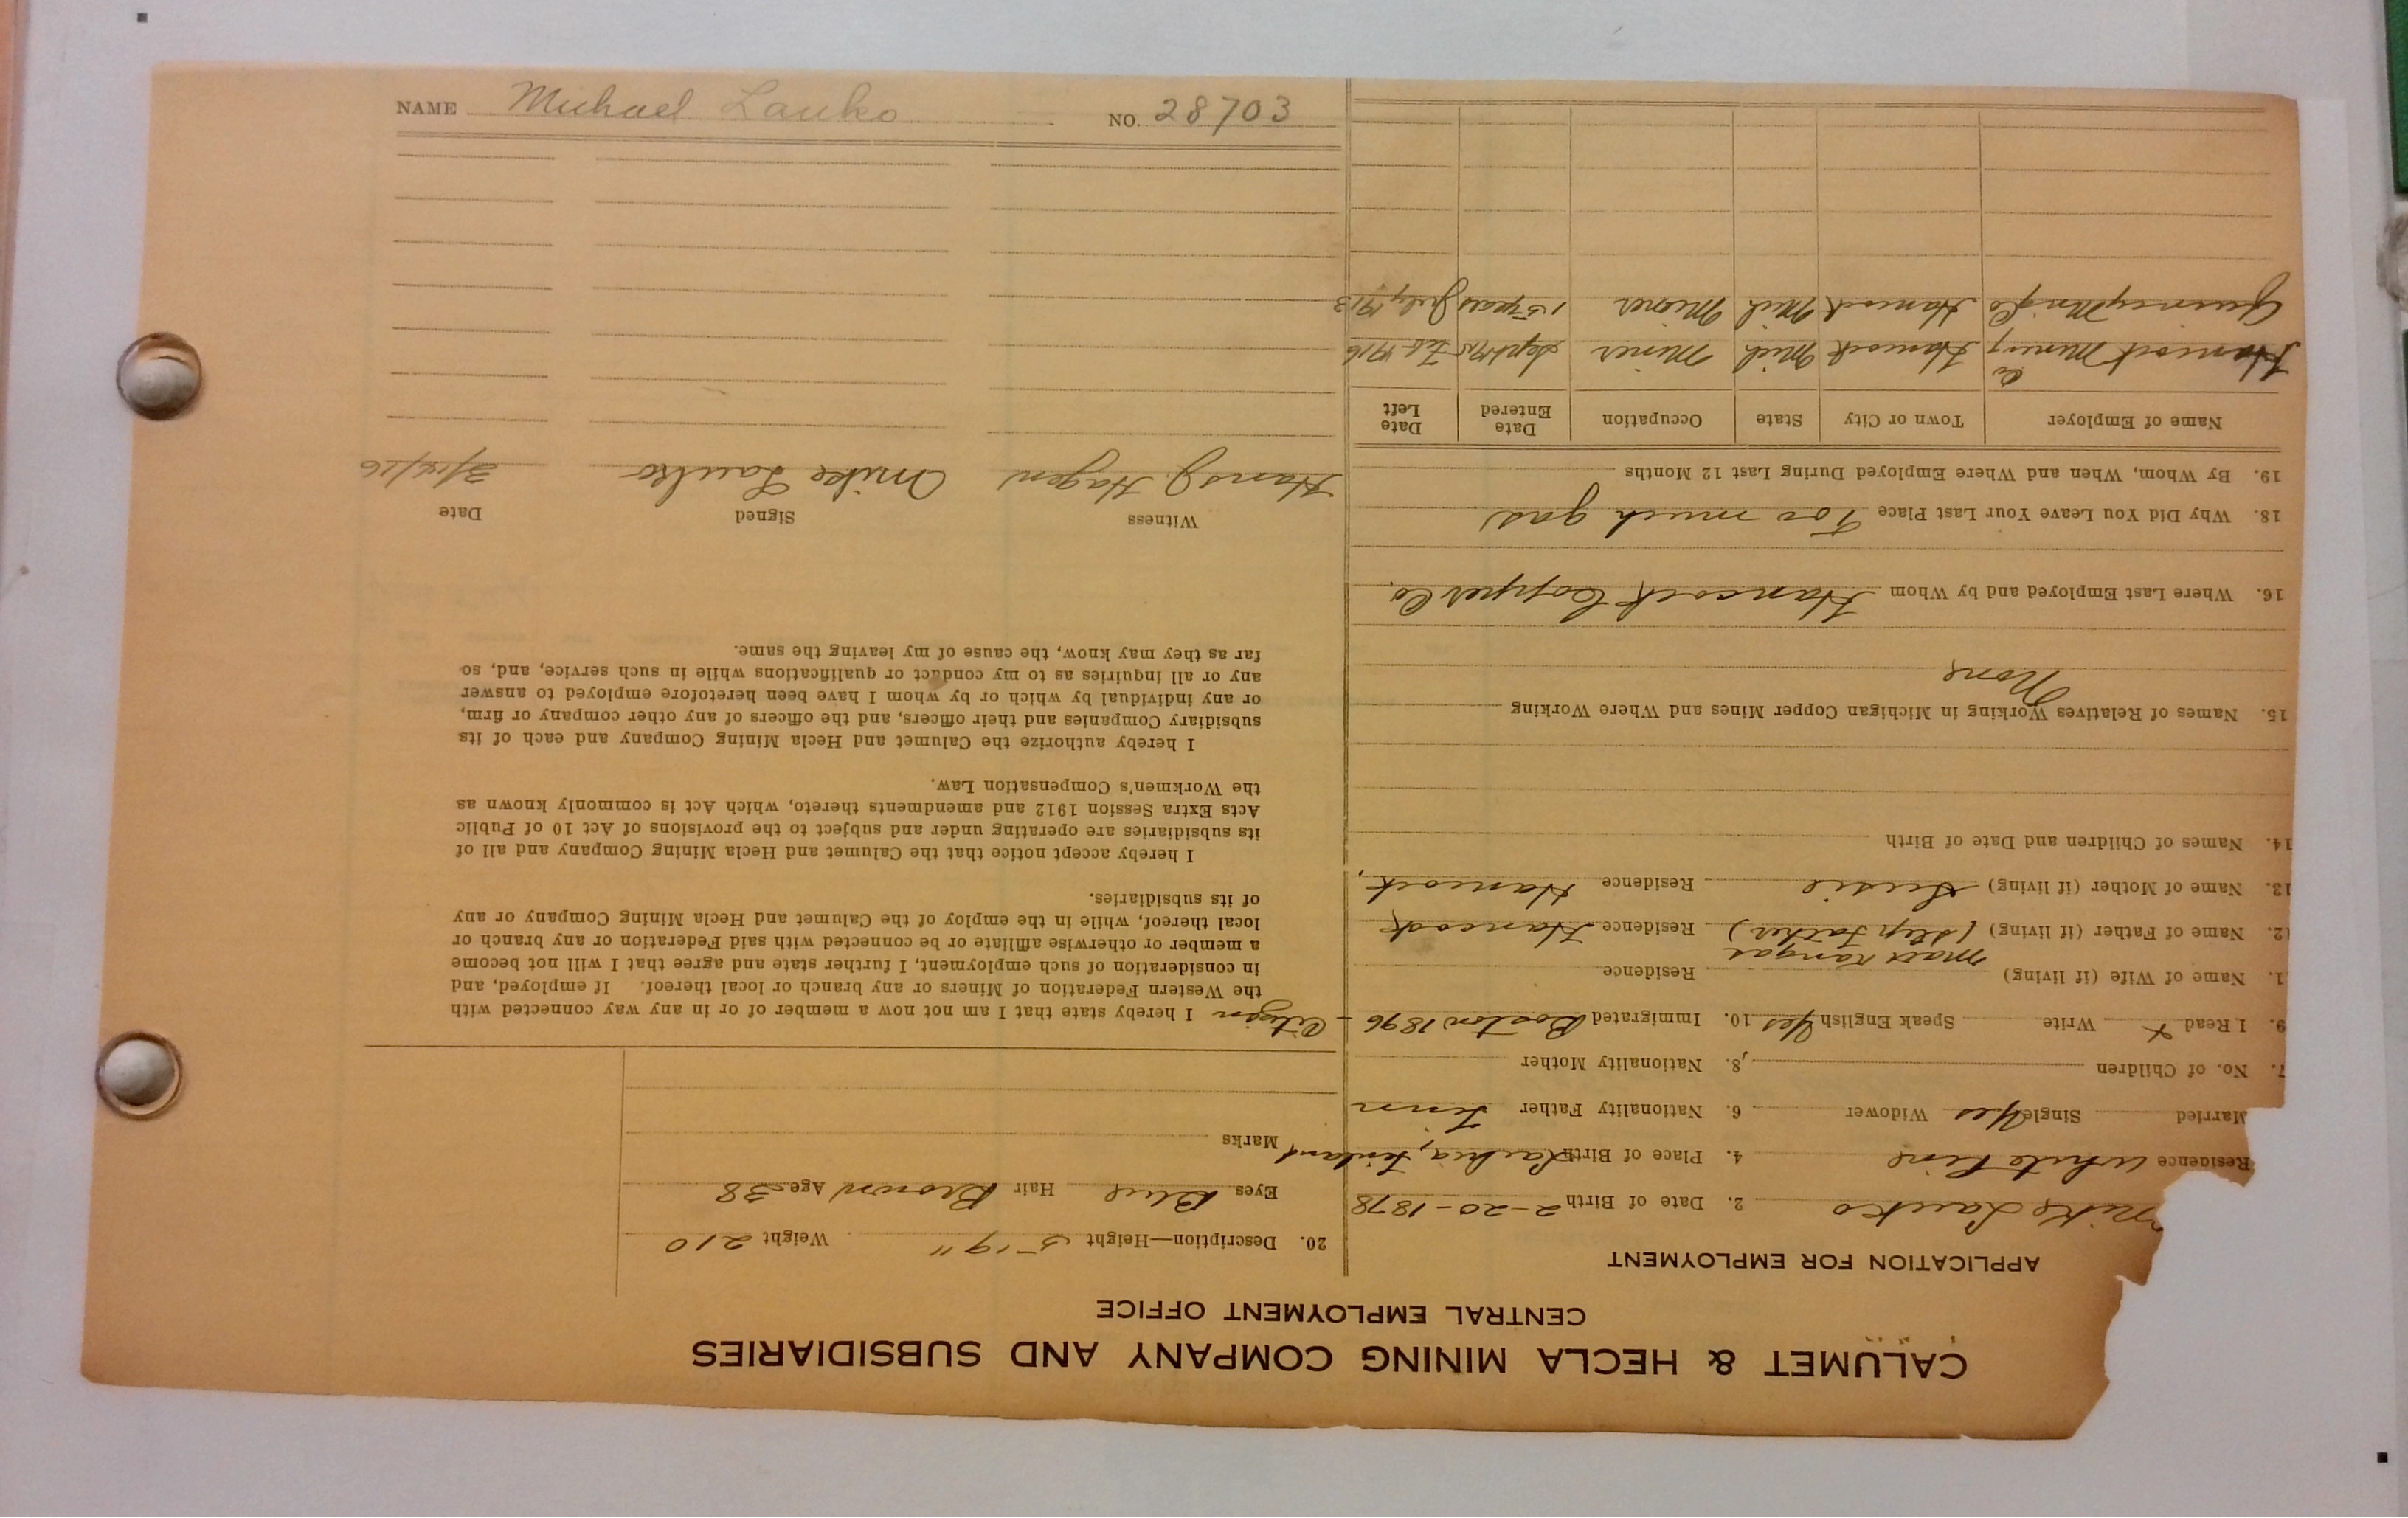 NAME Michael Lauko NO. 28703
CALUMET & HECLA MINING COMPANY AND SUBSIDIARIES
CENTRAL EMPLOYMENT OFFICE
APPLICATION FOR EMPLOYMENT
Mike Lauko 2. Date of Birth 2-20-1878
Residence White Pine 4. Place of Birth Finland
Married Single Yes Widower 6. Nationality Father Finn
7. No. of Children 8. Nationality Mother
9. I Read x Write Speak English Yes 10. Immigrated Boston 1896 - Citizen
1. Name of Wife (if living) Residence
Matt Kangas
2. Name of Father (if living) (Step Father) Residence Hancock
13. Name of Mother (if living) Susie Residence Hancock,
14. Names of Children and Date of Birth
15. Names of Relatives Working in Michigan Copper Mines and Where Working
None
16. Where Last Employed and by Whom Hancock Copper Co.
18. Why Did You Leave Your Last Place Too much gas
19. By Whom, When and Where Employed During Last 12 Months
Name of Employer Town or City State Occupation Date Entered Date Left
Hancock Mining Co Hancock Mich Miner Sept 1915 Feb 1916
Quincy Mining Co Hancock Mich Miner 15 years July 1913
20. Description—Height 5-9" Weight 210
Eyes Blue Hair Brown Age 38
Marks
I hereby state that I am not now a member of or in any way connected with
the Western Federation of Miners or any branch or local thereof. If employed, and
in consideration of such employment, I further state and agree that I will not become
a member or otherwise affiliate or be connected with said Federation or any branch or
local thereof, while in the employ of the Calumet and Hecla Mining Company or any
of its subsidiaries.
I hereby accept notice that the Calumet and Hecla Mining Company and all of
its subsidiaries are operating under and subject to the provisions of Act 10 of Public
Acts Extra Session 1912 and amendments thereto, which Act is commonly known as
the Workmen's Compensation Law.
I hereby authorize the Calumet and Hecla Mining Company and each of its
subsidiary Companies and their officers, and the officers of any other company or firm,
or any individual by which or by whom I have been heretofore employed to answer
any or all inquiries as to my conduct or qualifications while in such service, and, so
far as they may know, the cause of my leaving the same.
Witness Signed Date
Hans J. Hagen Mike Lauko 3/14/16